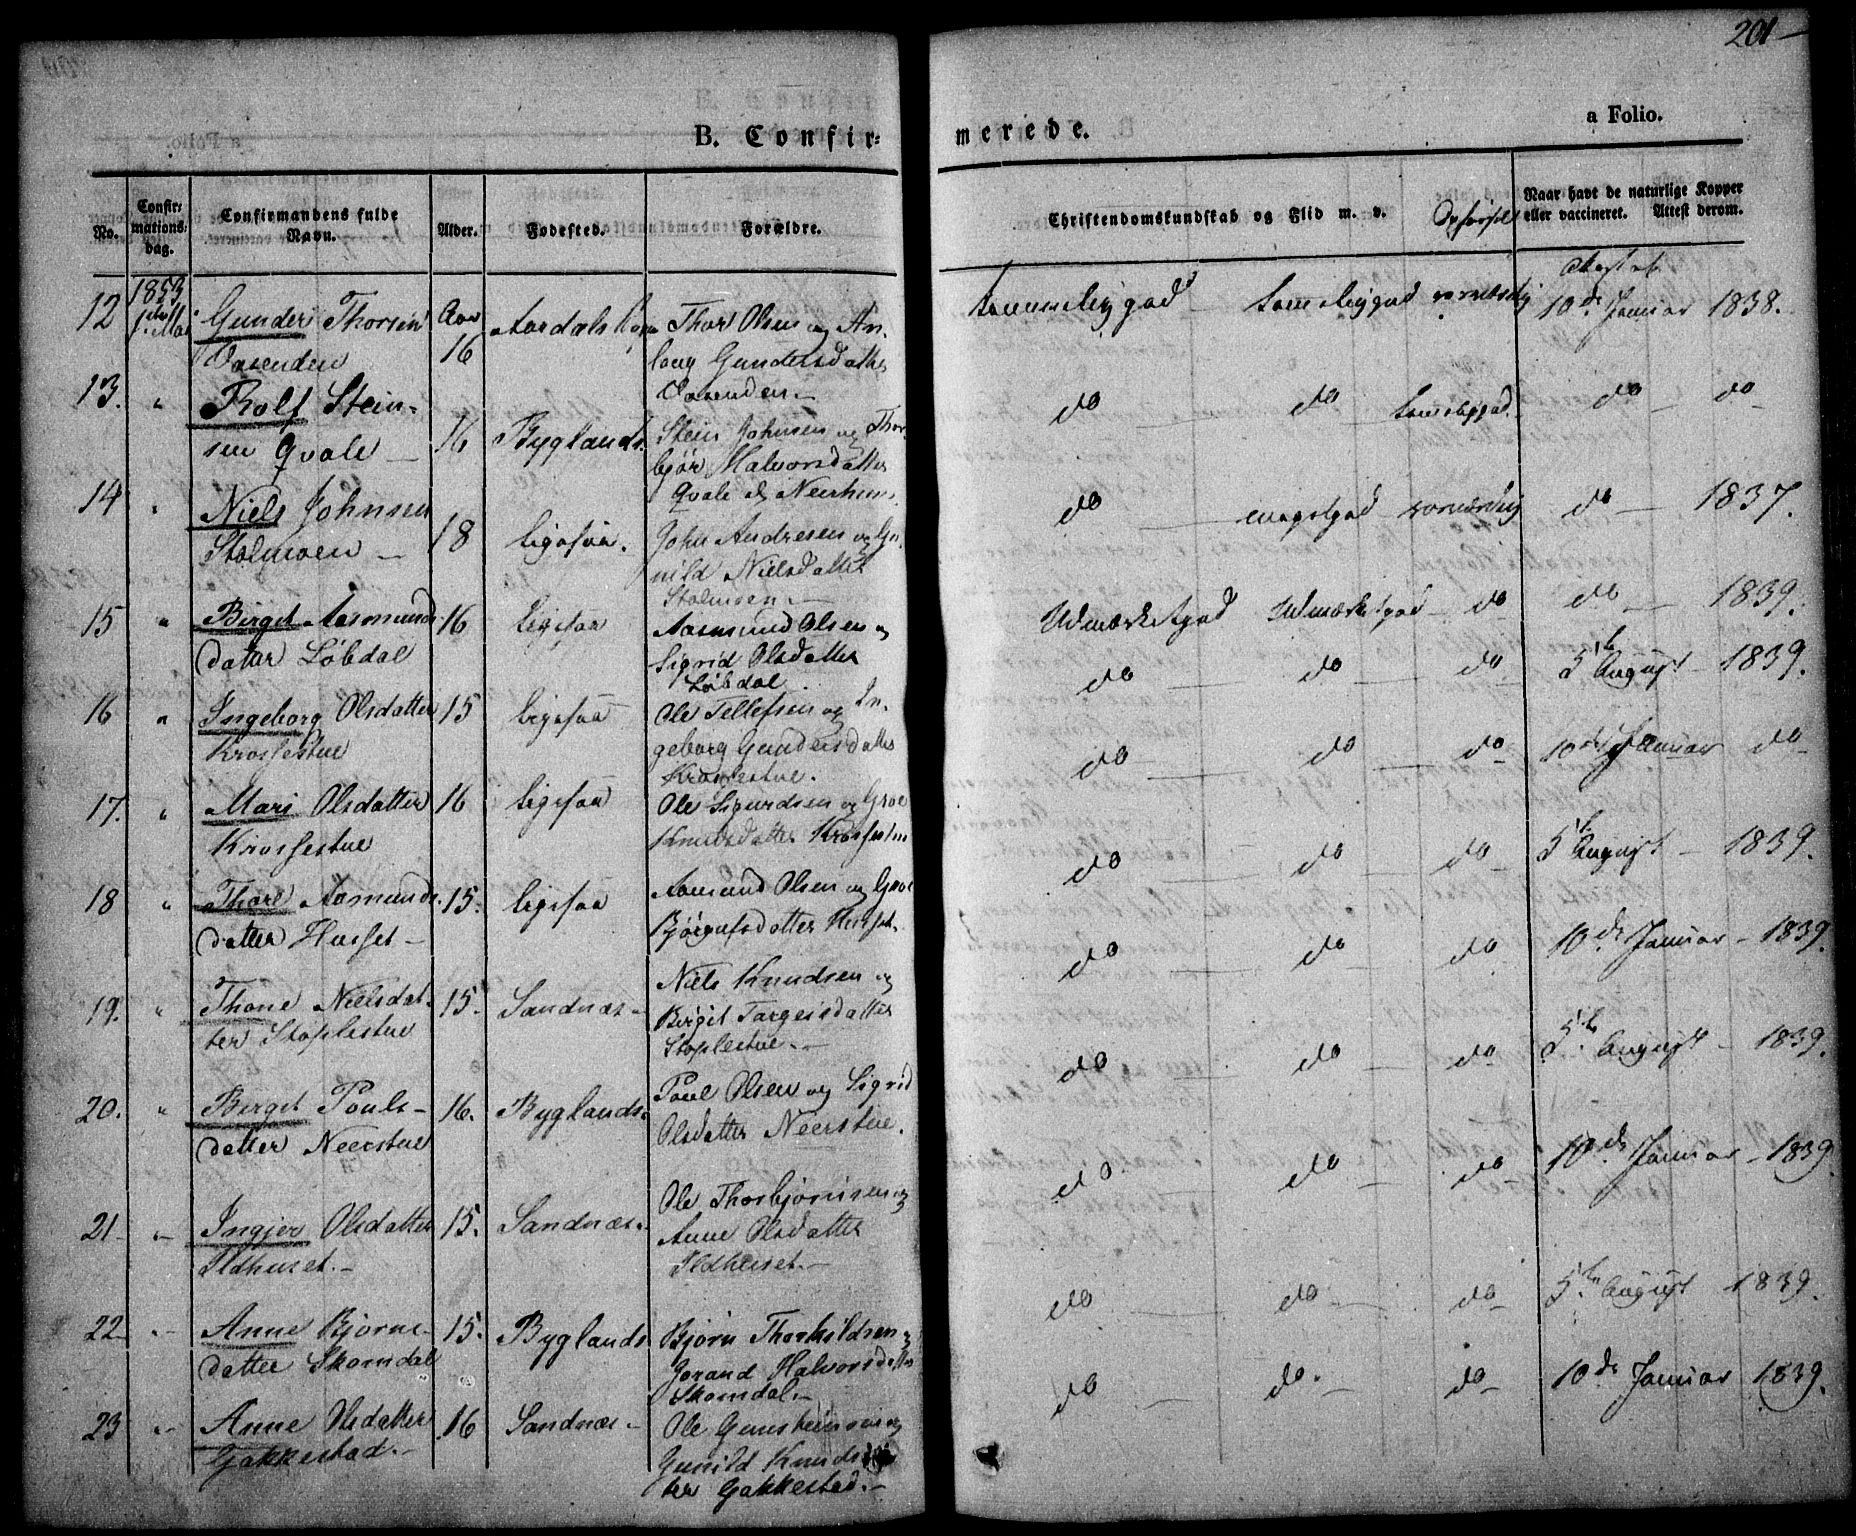 201
a Folio.
B. Confir=
merede.
No.
Confir=
mations=
dag.
Confirmandens fulde
Navn.
Alder.
Fodested.
Forældre.
Christendomskundskab og Flid m. v.
Opførsel
Naar havt de naturlige Kopper
eller vaccineret. Attest derom.
12
1853
Gunder Thorsen
Oasenden
Aar
16
Aardals
Thor Olsen og An-
laug Gundersdatter
Oasenden.
10de Januar 1838.
13.
"
Rolf Stein-
sen Qvale
16
Byglands.
Stein Johnsen og Thor-
bjør Halvorsdatter
Qvale
do
do
do
do
14
"
Niels Johnsen
Stolmoen
18
Ligesaa.
John Andresen og Gu-
nild Nielsdatter
Stolmoen
do
meget god
do
1837.
15
"
Birget Aasmunds-
datter Løbdal
16
Ligesaa
Aasmund Olsen og
Sigrid Olsdatter
Løbdal.
Udmærket god
Udmærket god
do
do
1839.
16
"
Ingeborg Olsdatter
Krossestue
15
Ligesaa
Ole Tellefsen og In-
geborg Gundersdatter
Krossestue.
do
do
do
5te August 1839.
17.
"
Mari Olsdatter
Krossestue
16
Ligesaa
Ole Sigurdsen og Groe
Knudsdatter Krossestue
do
do
do
10de Januar do
18
"
Thore Asmunds-
datter Husset
15.
Ligesaa
Aamund Olsen og Groe
Bjørgufsdatter Husset.
do
do
do
5te August 1839.
19.
"
Thone Nielsdat-
ter Stoplestue
15.
Sandnæs
Niels Knudsen og
Birgit Targeisdatter
Stoplestue.
do
do
do
10de Januar 1839.
20.
"
Birget Pouls-
datter Neerstue
16.
Byglands
Poul Olsen og Sigrid
Olsdatter Neerstue.
do
do
do
5te August 1839.
21
"
Ingjer Olsdatter
Ildhuset.
15.
Sandnæs
Ole Thorbjørnsen og
Anne Olsdatter
Ildhuset.
do
do
do
10de Januar 1839.
22
"
Anne Bjørns-
datter Skomdal
15.
Byglands
Bjørn Thorkildsen og
Jorand Halvorsdatter
Skomdal.
do
do
do
5te August 1839.
23
"
Anne Olsdatter
Gakkestad.
16
Sandnæs
Ole Gunsteinsen og
Gunild Knudsdat-
ter Gakkestad.
do
do
do
10de Januar 1839.